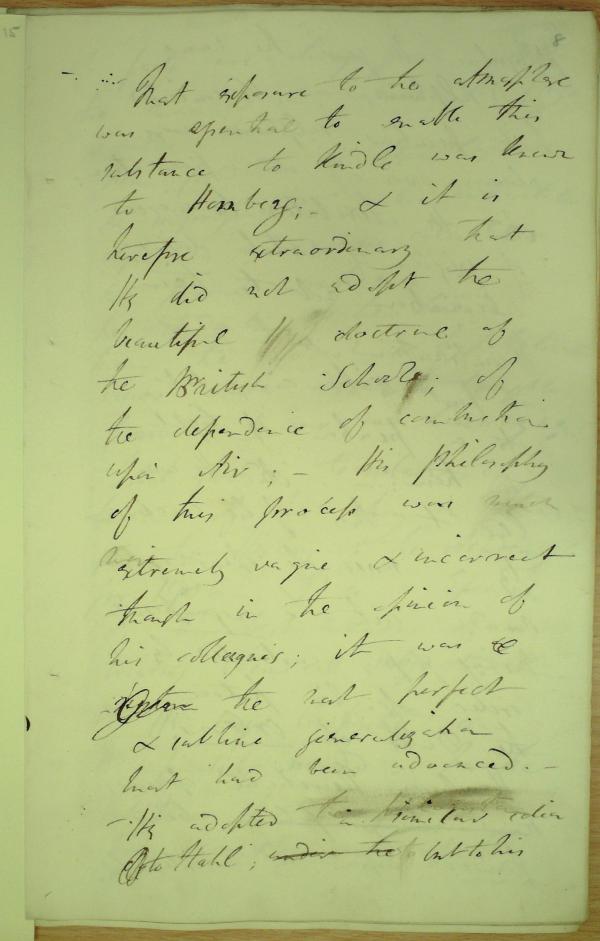 8
That exposure to the atmosphere
was essential to enable this
substance to Kindle was known
to Homberg; - & it is
therefore extraordinary that
He did not adopt the
beautiful doctrine of
the British Schools; of
the dependence of combustion
upon Air; - His Philosophy
of this process was
extremely vague & incorrect
though in the opinion of
his colleagues; it was
the most perfect
& sublime generalization
that had been advanced. -
- He adopted similar
to Stahl; under the but to his